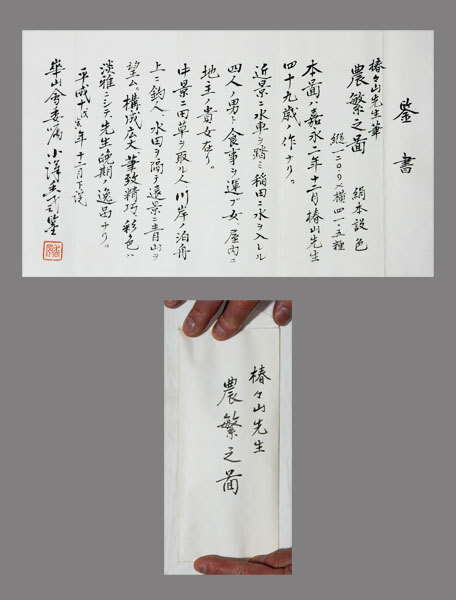 鑒書
椿々山先生筆
農繁之図 絹本設色
縦一二〇・〇×横四一・五糎
本図ハ嘉永二年十二月椿山先生
四十九歳ノ作ナリ。
近景ニ水車ヲ踏ミ稲田ニ水ヲ入レル
四人ノ男ト食事ヲ運ブ女屋内ニ
地主ノ貴女在リ。
中景ニ田草ヲ取ル人川岸ノ泊舟
上ニ釣人水田ヲ隔テ遠景ニ青山ヲ
望ム。構成広大筆致精巧、彩色ハ
淡雅ニシテ先生晩期ノ逸品ナリ。
平成十戊寅年十二月下浣
華山会委嘱 小澤 鑒
椿々山先生
農繁之図